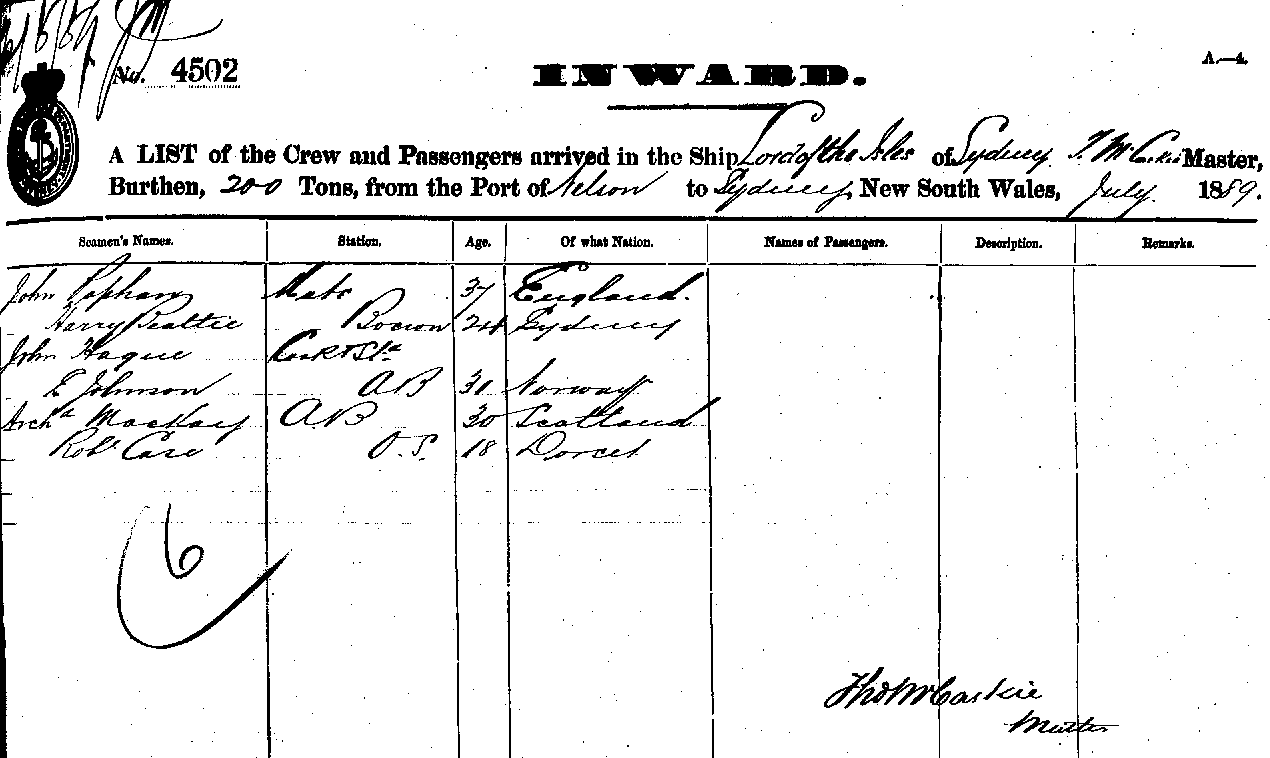 No. 4502
INWARD.
A.—4.
A LIST of the Crew and Passengers arrived in the Ship Lord of the Isles of Sydney T. McCaskie Master,
Burthen, 200 Tons, from the Port of Nelson to Sydney, New South Wales, July 1889.
Seamen's Names. Station. Age. Of what Nation. Names of Passengers. Description. Remarks.
John Popham Mate 37 England.
Harry Beattie Bosun 24 Sydney
John Hague Cook & Std
E Johnson AB 31 Norway
Archd Mackay AB 30 Scotland
Robt Case O.S. 18 Dorset
6
Thos McCaskie
Master